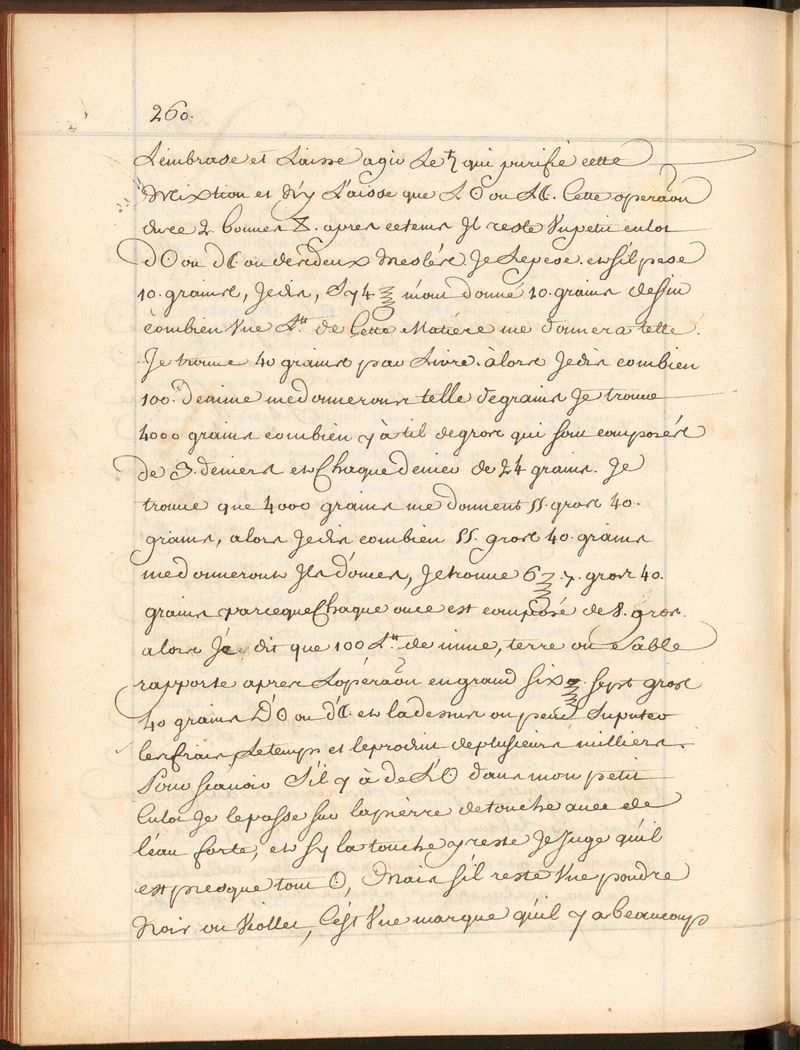 260.
L'embrase et Laisse agir Le ♄ qui purifie cette
Mixtion et N'y Laisse que L ☉ ou L☾. Cette operãon
dure 2. bonnes ⧖. apres ce tems Il reste Un petit culot
d☉ ou d☾ ou des deux Meslés. Je Le pese. et S'il pese
10. grains, Je dis, Sy 4 ℥ m'ont donné 10. grains de fin
combien Une L.tt de Cette Matiére me donnera telle.
Je trouve 40 grains par Livre. àlors Je dis combien
100. de mine me donnerons telle de grains Je trouve
4000 grains combien y à til de gros qui sont composés
de 3. deniers et Chaque denier de 24 grains. Je
trouve que 4000 grains me donnent 55. gros 40.
grains, alors Je dis combien 55. gros 40. grains
me donneront Ils d'onces, Je trouve 6 ℥. 7. gros 40.
grains parceque Chaque once est composé de 8. gros.
alors Je dit que 100 L.tt de mine, terre ou Sable
rapporte apres L'opérãon en grand six ℥ sept gros
40 grains D'☉ ou d'☾. et la dessus on peut Suputer
les frais, Le temps et le produit de plusieurs milliers.
Pour scâvoir S'il y à de L'☉ dans mon petit
Culot Je le passe sur la pierre de touche avec de
l'éau forte, et sy la touche y reste Je Juge qu'il
est presque tout ☉, Mais s'il reste Une poudre
Noir ou Viollet, C'est Une marque qu'il y a beaucoup